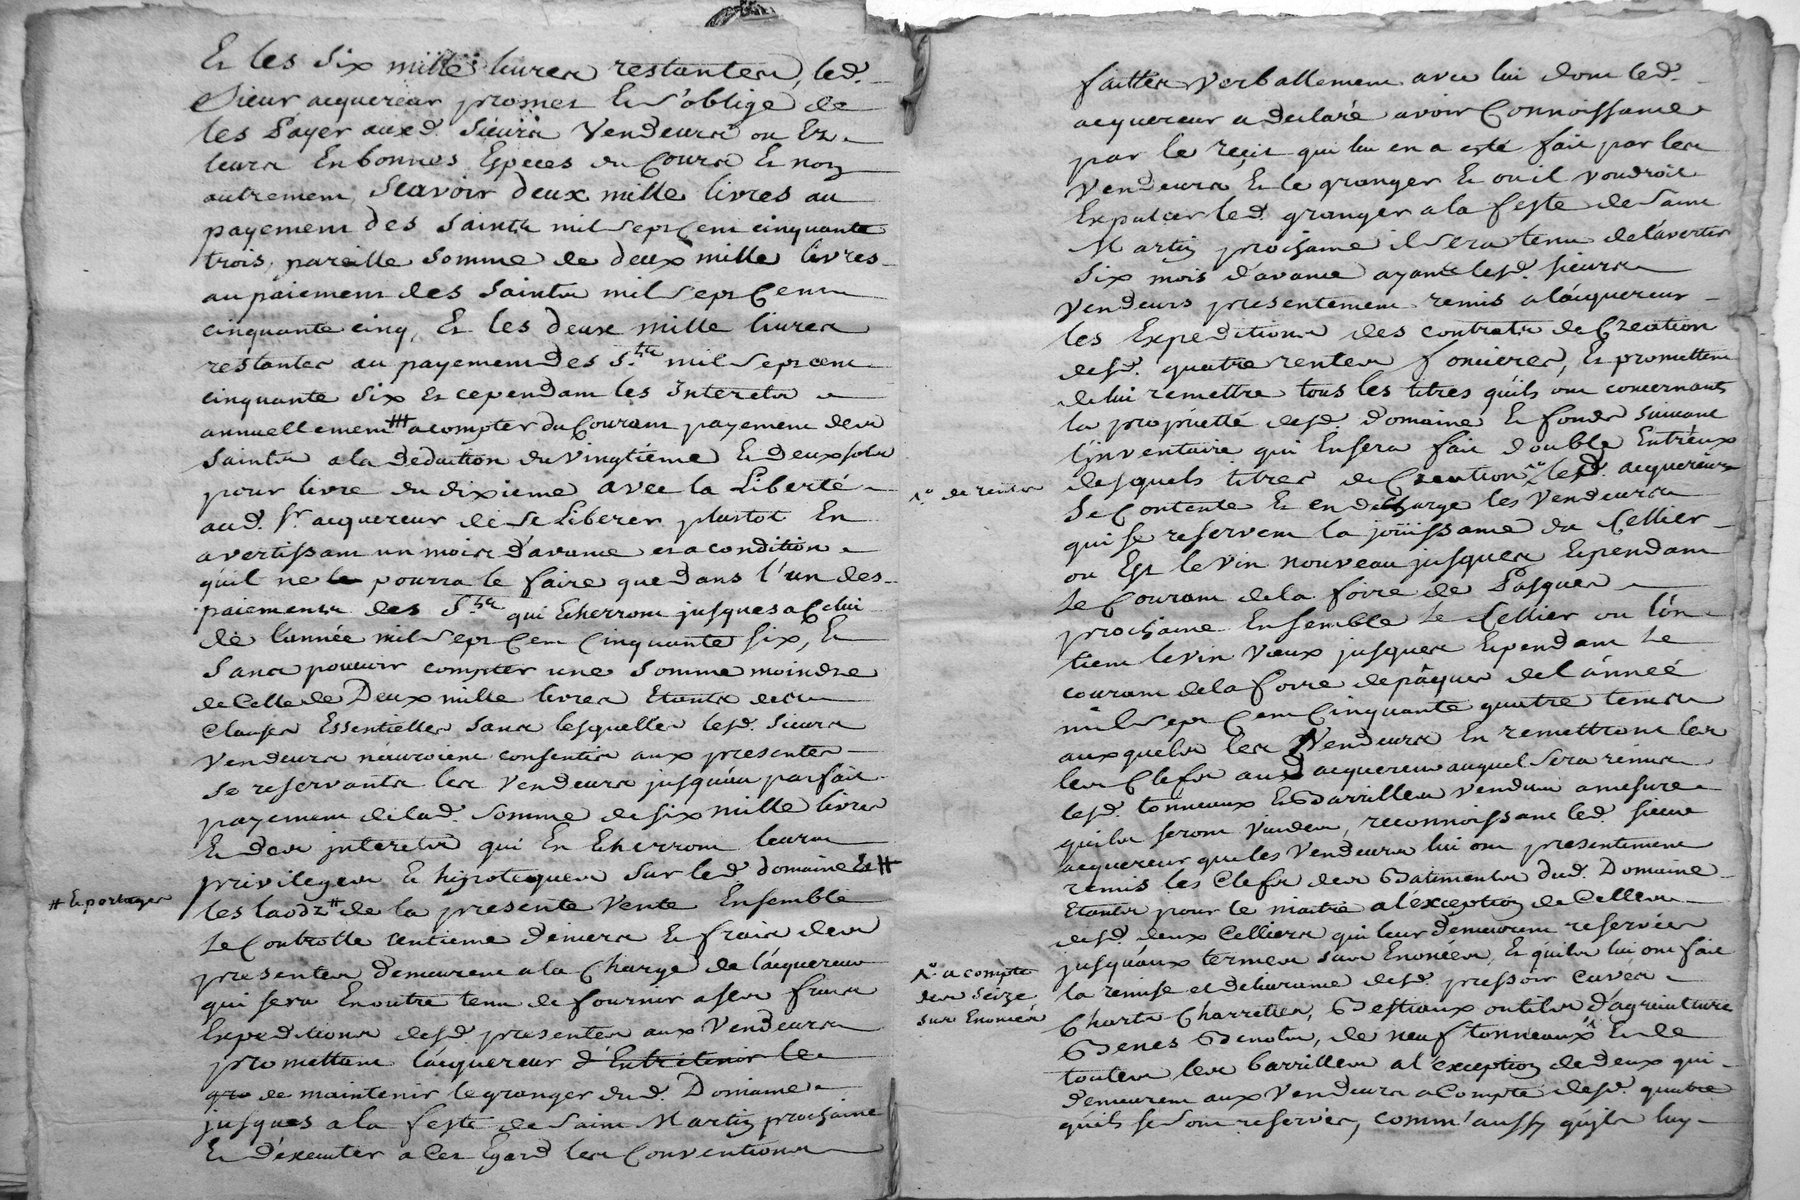 Et les six mille livres restantes, led.
Sieur acquereur promet Et s'oblige de
les Payer auxd. Sieurs Vendeurs ou Ez
leurs En bonnes Especes du Cours Et non
autrement, Scavoir deux mille livres au
payement des Saints mil sept Cent cinquante
trois, pareille Somme de deux mille livres
au paiement des Saints mil sept Cent
cinquante cinq, Et les deux mille livres
restantes au payement des Sts mil sept cent
cinquante Six et cependant les Interets
annuellement # a compter du Courant payement des
Saints a la deduction du Vingtiéme Et deux sols
pour livre du dixieme avec la Liberté
aud. Sr. acquereur de se Liberer plustot En
avertissant un mois d'avance et a condition
qu'il ne pourra le faire que dans l'un des
paiements des Sts qui Echerront jusques a Celui
de l'année mil sept Cent Cinquante six, Et
Sans pouvoir compter une Somme moindre
de Celle de Deux mille livres Etants
Clauses Essentielles Sans lesquelles lesd. Sieurs
Vendeurs n'auroient consentis aux presentes
se reservants les Vendeurs jusqu'au parfait
payement de lad. Somme de six mille livres
Et des interets qui En Echerront leurs
privileges Et hipoteques sur led. domaine Et #
# Et portages
les laodz # de la presente Vente Ensemble
Le Controlle Centieme deniers Et frais des
presentes demeurent a la Charge de l'acquereur
qui sera En outre tenu de fournir a ses frais
Expeditions desd. presentes aux Vendeurs
promettant l'acquereur d'Entretenir le
gra de maintenir le granger dud. Domaine
jusques a la feste de Saint Martin prochaine
Et d'executer a Cet Egard les Conventions
faittes Verballement avec lui dont led.
acquereur a declaré avoir Connoissance
par le reçit qui lui en a esté fait par les
Vendeurs Et le granger Et ou il voudroit
Expulcer led. granger a la feste de Saint
Martin prochaine il sera tenu de l'avertir
Six mois d'avance ayants lesd. Sieurs
Vendeurs presentement remis a l'acquereur
les Expeditions des contrats de Creation
desd. quatre rentes foncieres, Et promettent
de lui remettre tous les titres qu'ils ont concernants
la proprietté desd. domaine Et fonds suivant
l'inventaire qui En sera fait double Entr'eux
desquels titres de Creation led. acquereur
de rentes
se Contente Et en decharge les Vendeurs
qui se reservent la joüissance du Cellier
ou Est le vin nouveau jusques Et pendant
Le Courant de la foire de Pasques
prochaine Ensemble Le Cellier ou l'on
tient le vin Vieux jusques Et pendant le
courant de la foire de pâques de l'année
mil sept Cent Cinquante quatre tems
auxquels les Vendeurs En remettront les
les Clefs aud acquereur auquel sera remis
lesd. tonneaux Et Barrilles vendus a mesure
qu'ils seront Vuides, reconnoissant led. Sieur
acquereur que les Vendeurs lui ont presentement
remis les Clefs des Batiments dud. Domaine
Etants pour le maitre a l'éxception de Celles
desd. deux Celliers qui leur demeurent reservées
jusqu'aux termes sus Enoncés, Et qu'ils lui ont fait
la remise et delivrance desd. pressoir Cuves
Chars Charrettes, Bestiaux outils d'agriculture
Benes Benots, de neuf tonneaux Et de
a compte
des Seize
sus Enoncés
toutes les barrilles a l'exception de deux qui
demeurent aux Vendeurs a Compte desd. quatre
qu'ils se sont reservés, comm'aussy qu'ils luy